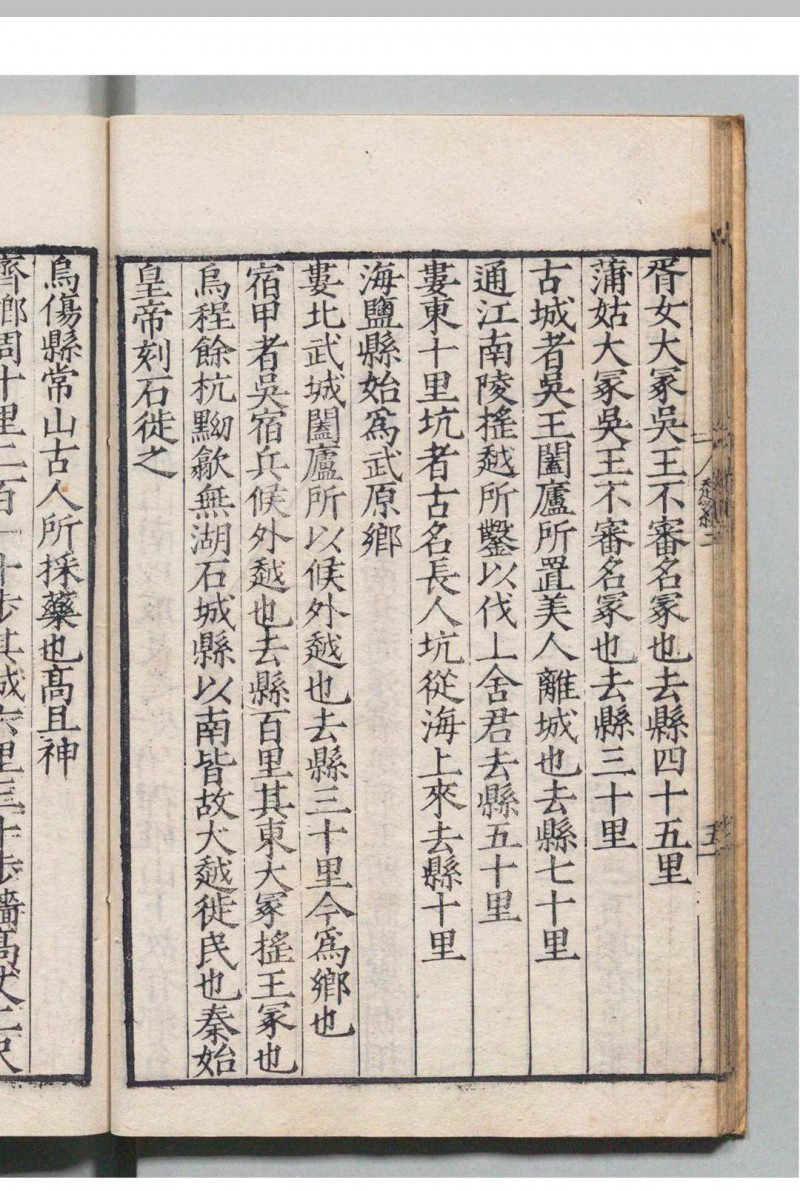 胥女大冢吳王不審名冢也去縣四十五里
蒲姑大冢吳王不審名冢也去縣三十里
古城者吳王闔廬所置美人離城也去縣七十里
通江南陵搖越所鑿以伐上舍君去縣五十里
婁東十里坑者古名長人坑從海上來去縣十里
海鹽縣始爲武原鄉
婁北武城闔廬所以候外越也去縣三十里今爲鄉也
宿甲者吳宿兵候外越也去縣百里其東大冢搖王冢也
烏程餘杭黝歙無湖石城縣以南皆故大越徙民也秦始
皇帝刻石徙之
烏傷縣常山古人所採藥也高且神
齊鄉周十里二百一十步其城六里三十步牆高丈二尺